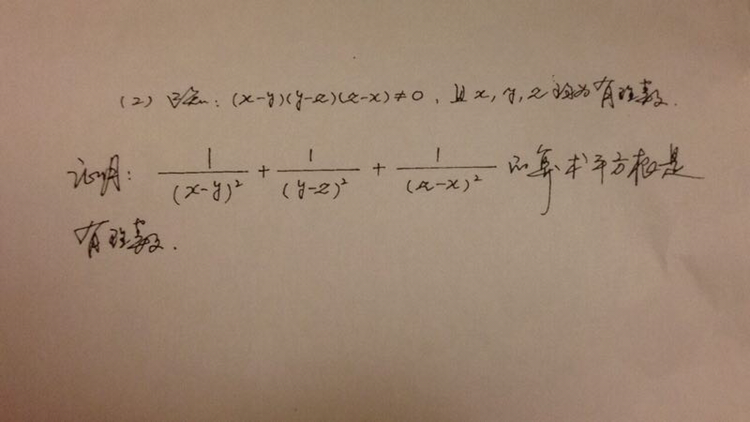 (2) 已知: (x-y)(y-z)(z-x)≠0, 且 x, y, z 均为有理数.
证明: 1/(x-y)² + 1/(y-z)² + 1/(z-x)² 的算术平方根是
有理数.